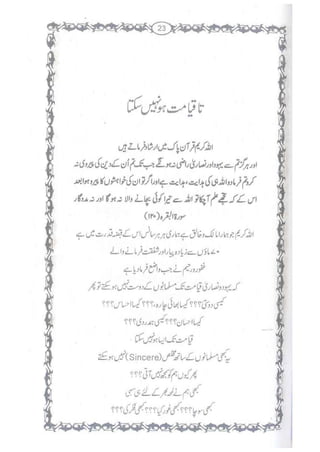 23
تا قیامت ہو نہیں سکتا
اللہ کریم قرآن پاک میں ارشاد فرماتے ہیں
اور ہرگز تم سے یہود اور نصاریٰ راضی نہ ہونگے جب تک تم اُن کے دین کی پیروی نہ
کرو تم فرما دو اللہ ہی کی ہدایت، ہدایت ہے اور اگر تو ان کی خواہشوں کا پیرو ہوا بعد
اس کے کہ تجھے علم آچکا تو اللہ سے تیرا کوئی بچانے والا نہ ہوگا اور نہ مددگار
سورۃ البقرہ (۱۲۰)
اللہ کریم جو ہمارا مالک و خالق ہے ہماری ہر ہر سانس اس کے قبضہ قدرت میں ہے
۷۰ ماؤں سے زیادہ پیار اور شفقت فرمانے والے
غفور و رحیم نے جب واضع فرما دیا ہے
کہ یہود و نصاریٰ قیامت تک مسلمانوں کے دوست نہیں ہو سکتے تو پھر
کیسی دوستی؟؟؟ کیسا بھائی چارہ،؟؟؟ کیسا احساس؟؟؟
کیسا احسان؟؟؟ کیسی ہمدردی؟؟؟
قیامت تک ایسا ہو نہیں سکتا
یہ کبھی مسلمانوں کے ساتھ مخلص (Sincere) نہیں ہو سکتے
پھر کیوں ہم کو سمجھ نہیں آتی؟؟؟
کبھی ہم نے لمحہ بھر کے لئے ہی سہی
کبھی سوچا؟؟؟ کبھی غور کیا؟؟؟ کبھی فکر کی؟؟؟